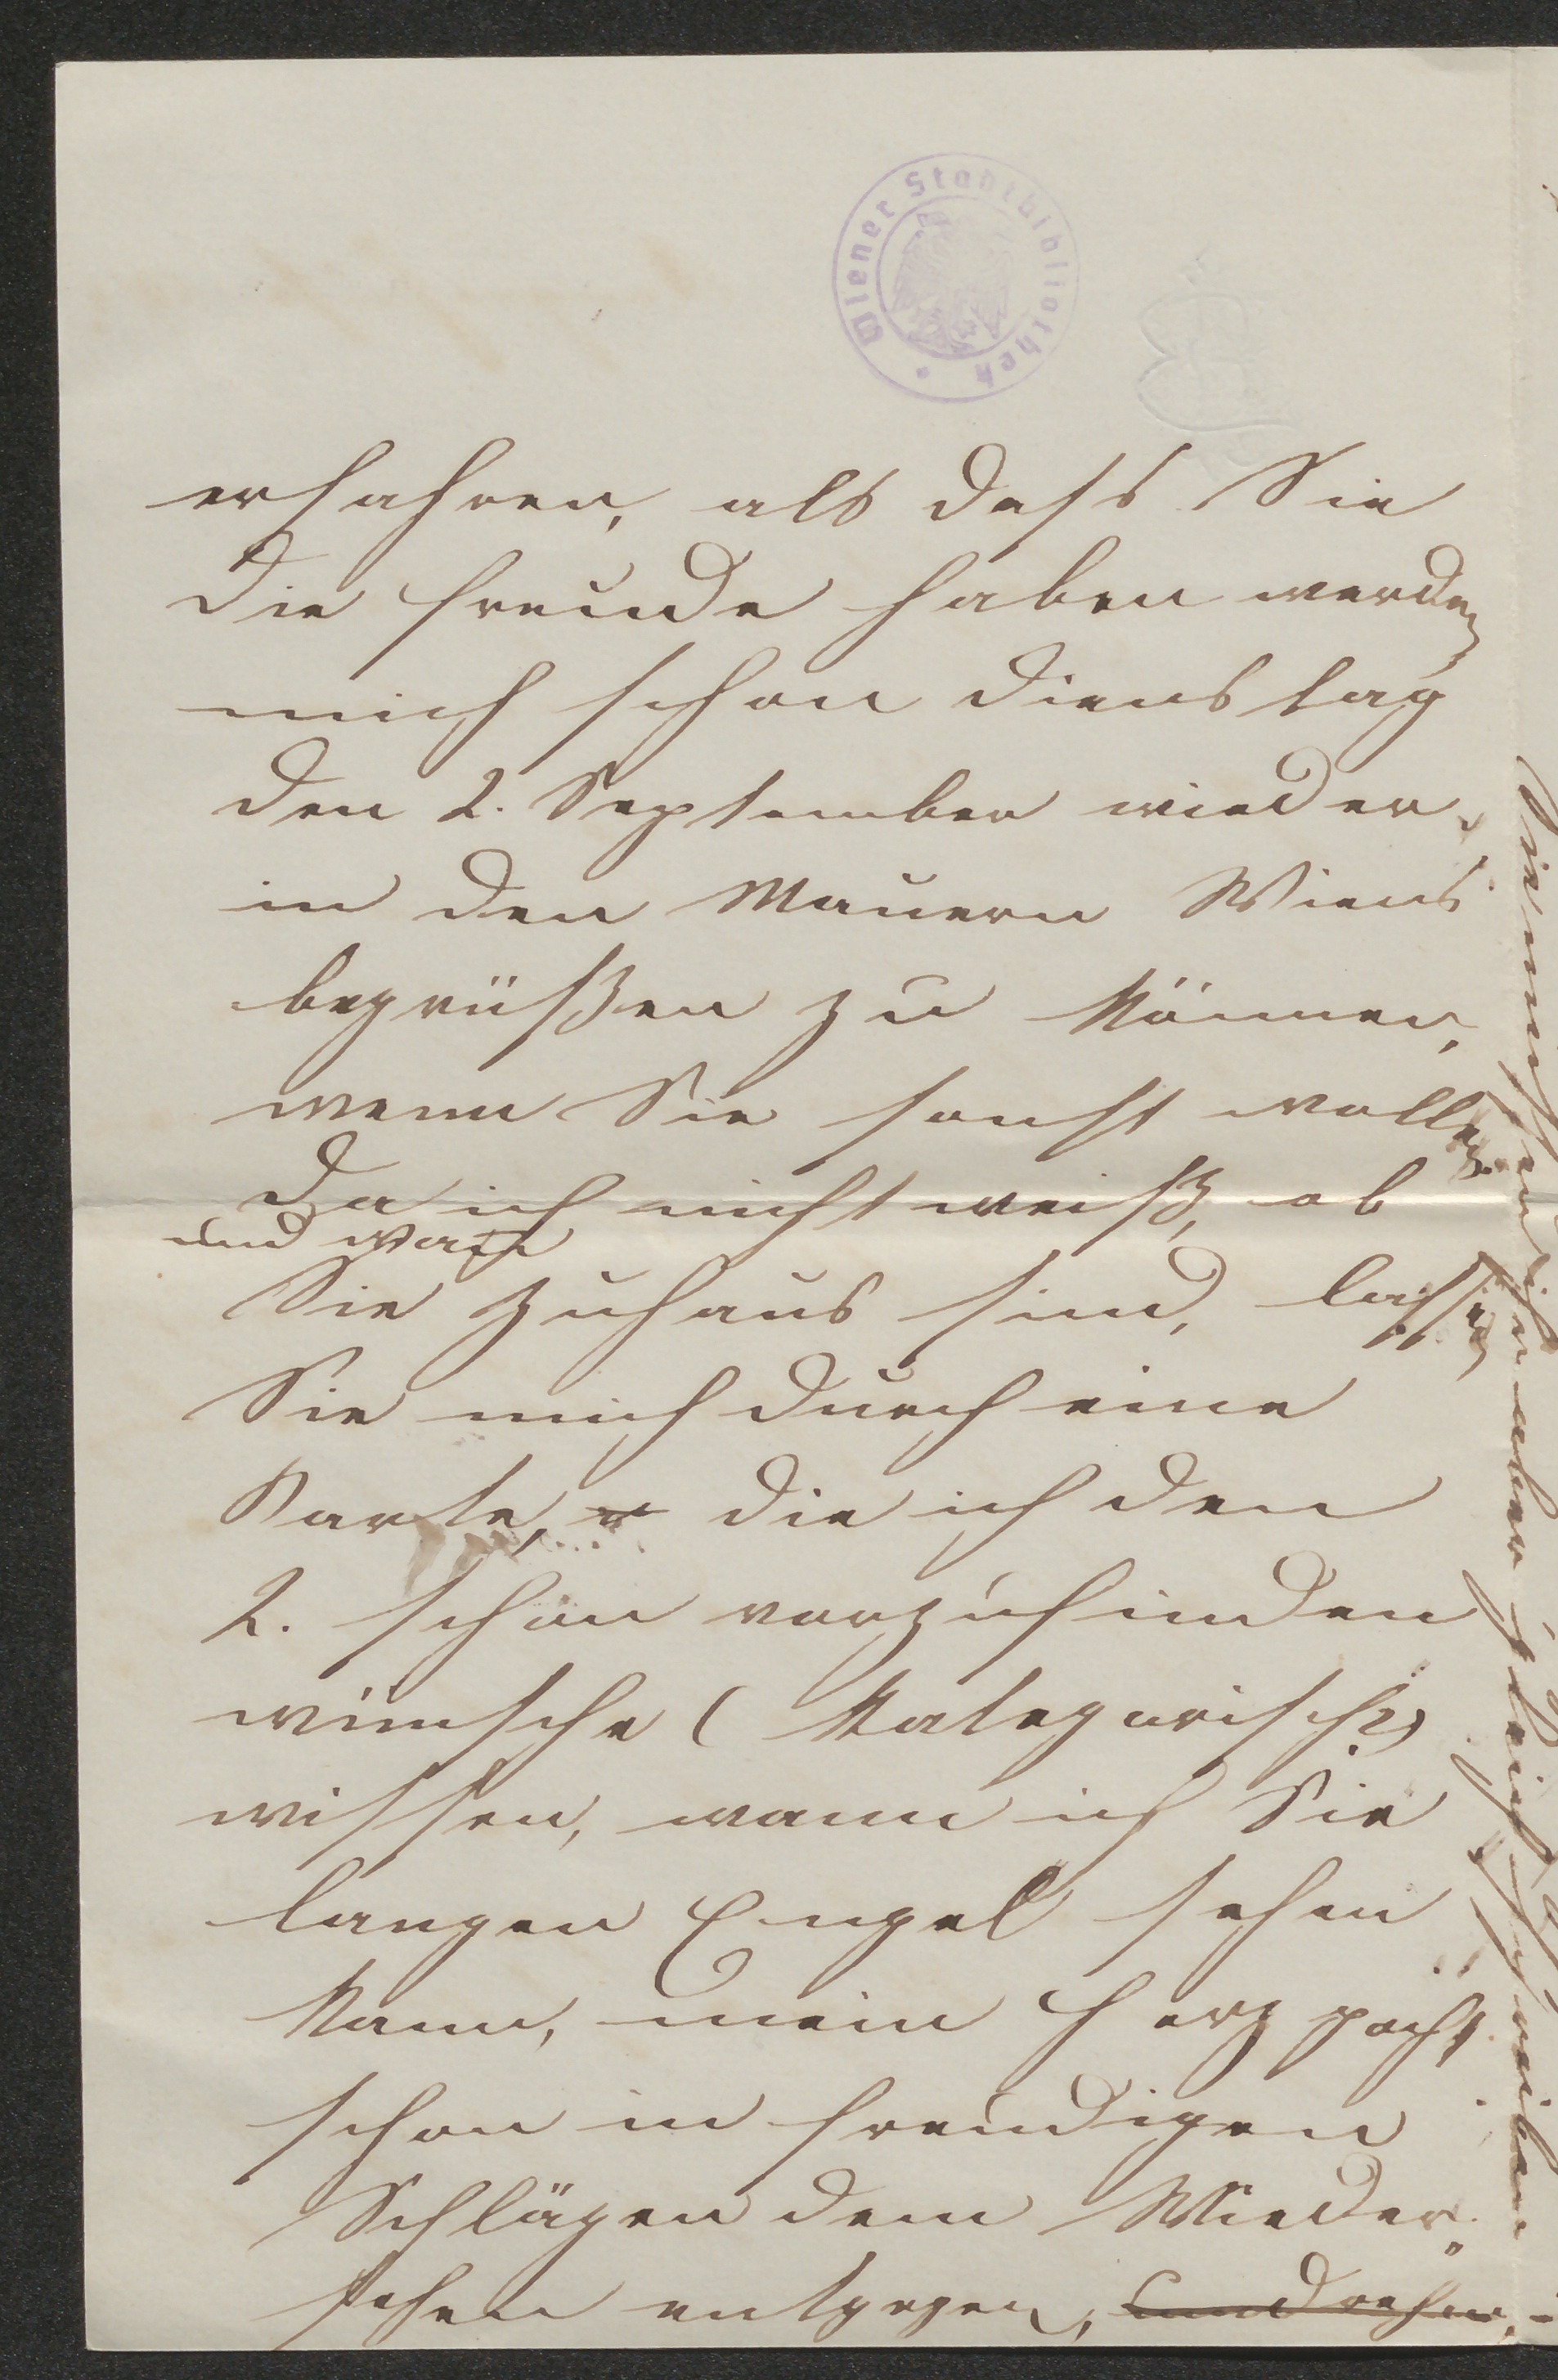 Wiener Stadtbibliothek
erfahren, als dass Sie
die Freude haben werden
mich schon Dienstag
den 2. September wieder
in den Mauern Wiens
begrüßen zu können,
wenn Sie sonst wollen.
Da ich nicht weiß, ob
und wann
Sie zuhaus sind, lassen
Sie mich durch eine
Karte, die ich den
2. schon vorzufinden
wünsche (kategorisch?)
wissen, wann ich Sie
langen Engel sehen
kann, mein Herz pocht
schon in freudigen
Schlägen dem Wieder-
sehen entgegen,
aber gleich schreiben